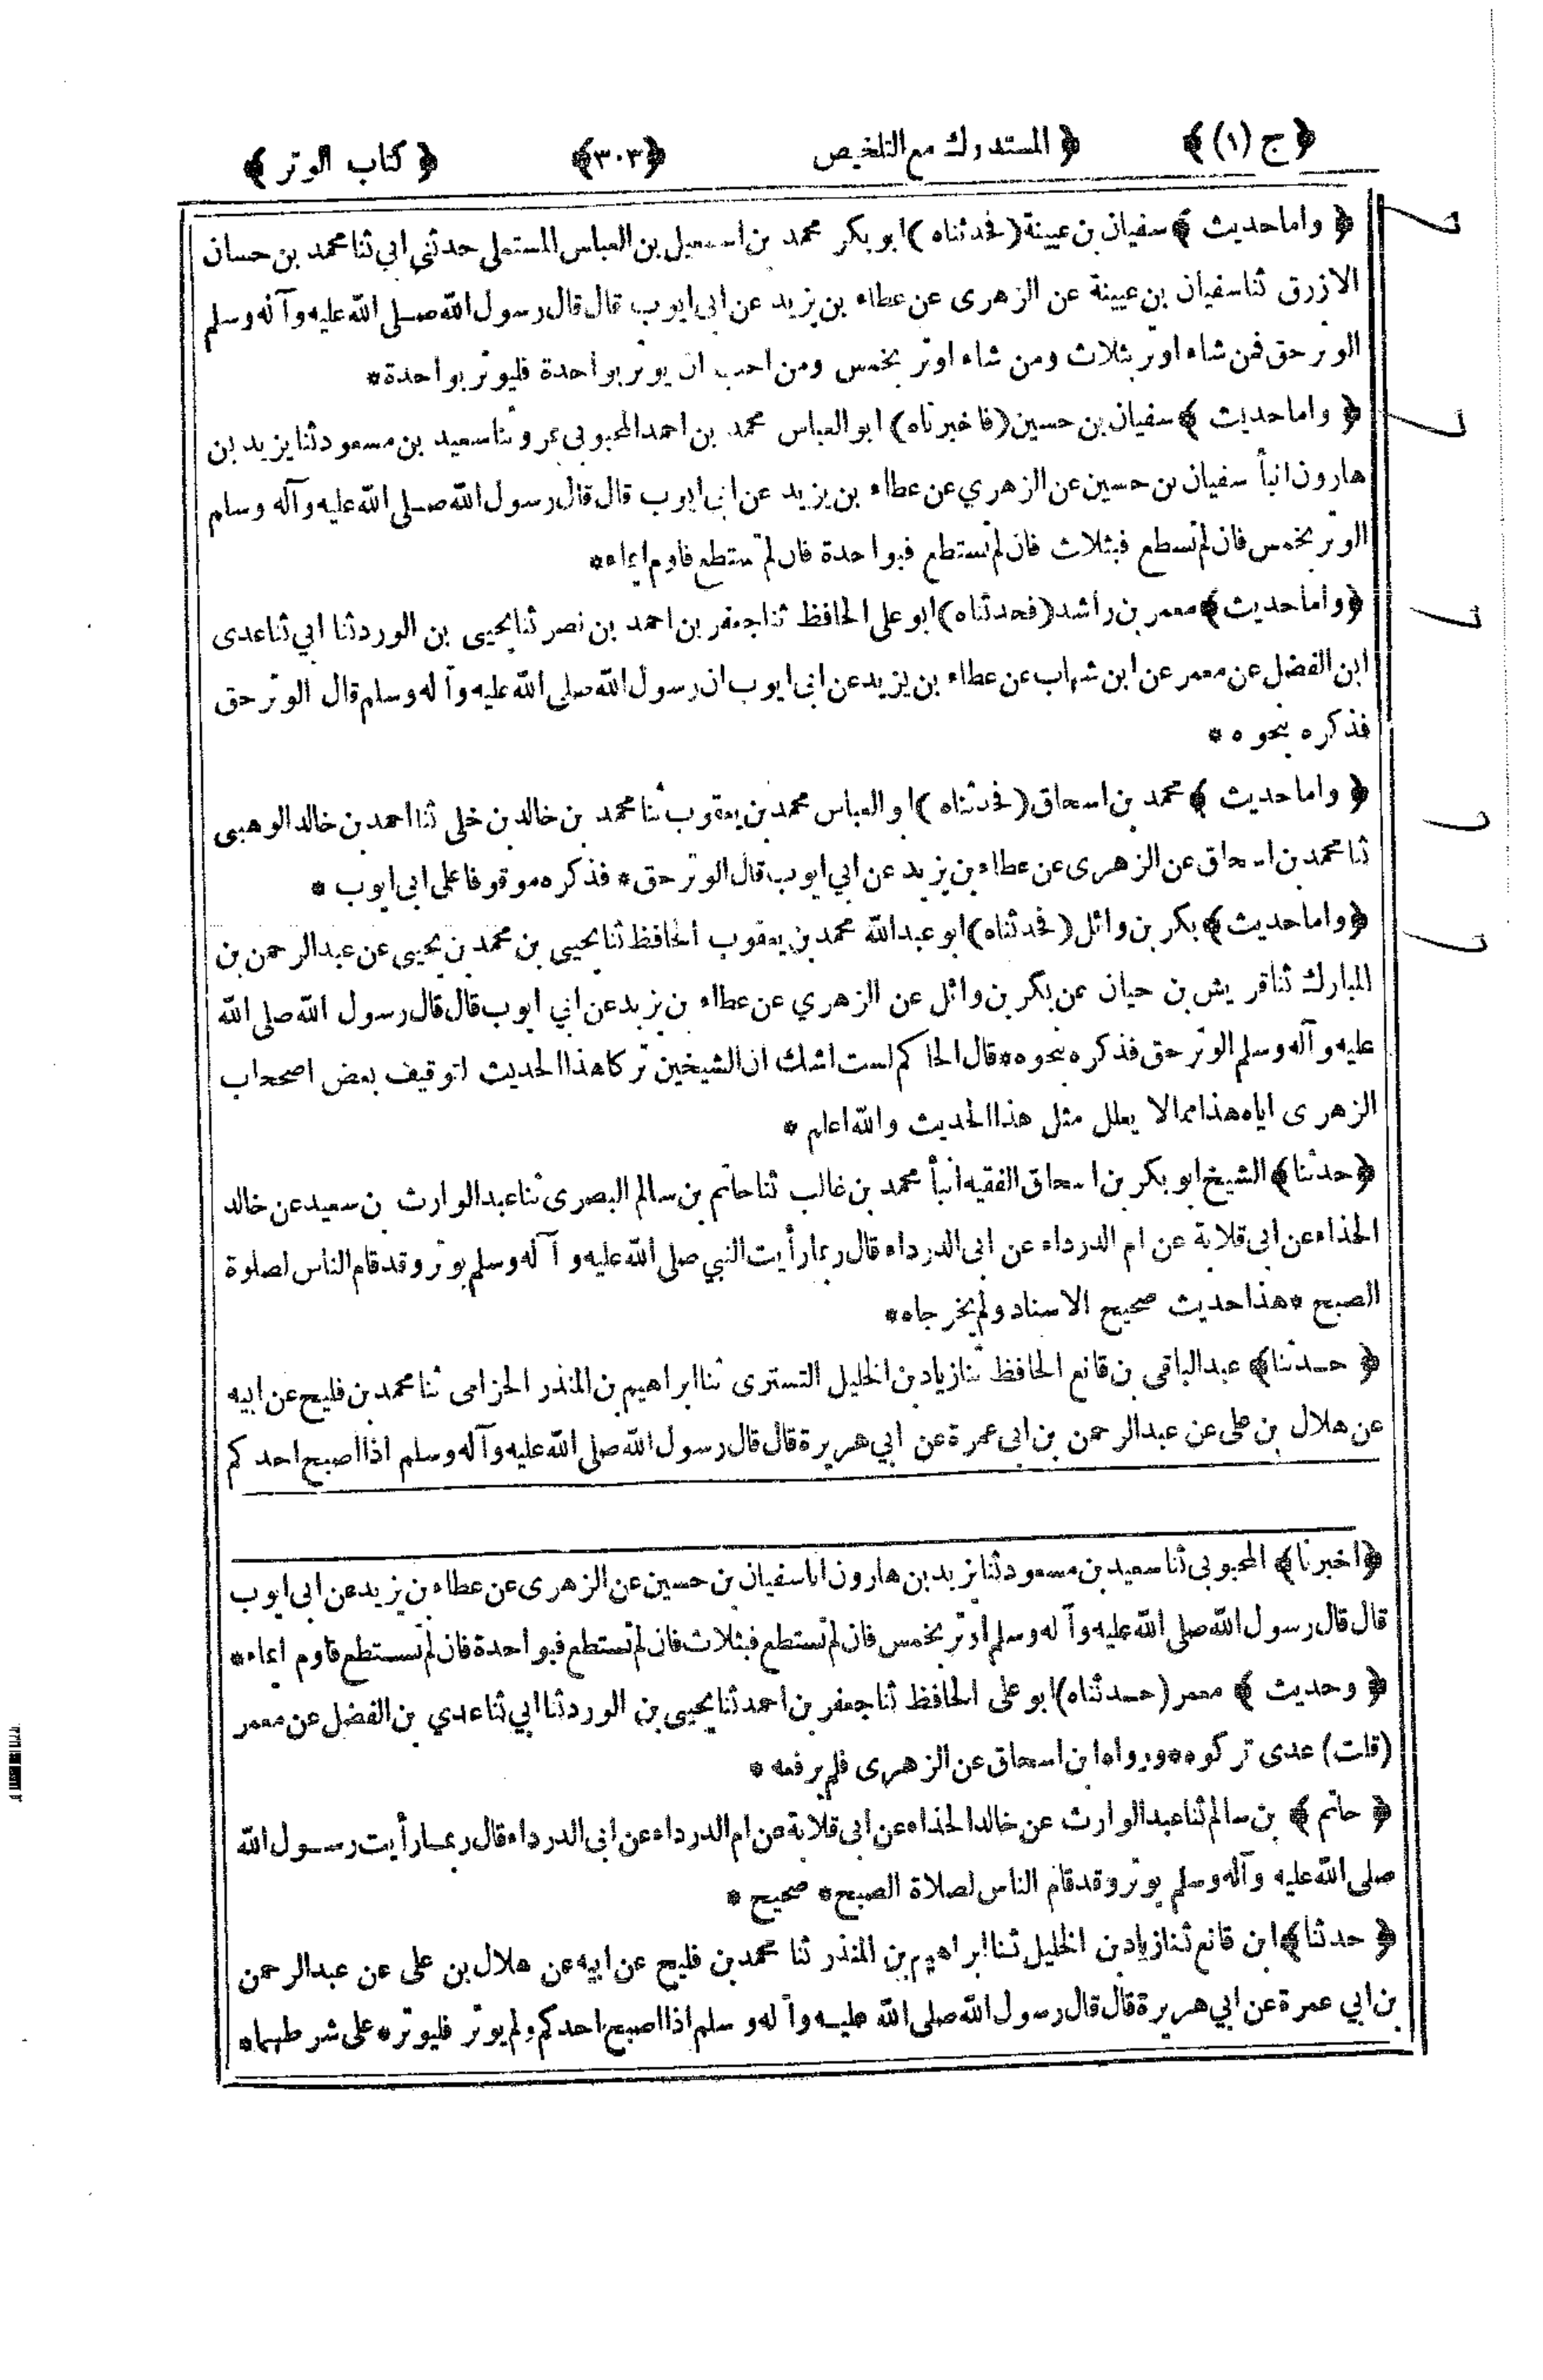 ﴿ج (١)﴾ ﴿المستدرك مع التلخيص ﴿٣٠٣﴾ ﴿ كتاب الوتر ﴾
﴿ واما حديث ﴾ سفيان بن عيينة (فحدثناه) ابو بكر محمد بن اسمعيل بن العباس المستملى حدثني ابي ثنا محمد بن حسان
الازرق ثنا سفيان بن عيينة عن الزهرى عن عطاء بن يزيد عن ابى ايوب قال قال رسول الله صلى الله عليه وآله وسلم
الوتر حق فمن شاء اوتر بثلاث ومن شاء اوتر بخمس ومن احب ان يوتر بواحدة فليوتر بواحدة*
﴿ واما حديث ﴾ سفيان بن حسين (فاخبرناه) ابو العباس محمد بن احمد المحبوبى بمرو ثنا سعيد بن مسعود ثنا يزيد بن
هارون انبأ سفيان بن حسين عن الزهري عن عطاء بن يزيد عن ابى ايوب قال قال رسول الله صلى الله عليه وآله وسلم
الوتر بخمس فان لم تسطع فبثلاث فان لم تستطع فبواحدة فان لم تستطع فاوم ايماء*
﴿واما حديث﴾ معمر بن راشد (فحدثناه) ابو على الحافظ ثنا جعفر بن احمد بن نصر ثنا يحيى بن الورد ثنا ابي ثنا عدى
ابن الفضل عن معمر عن ابن شهاب عن عطاء بن يزيد عن ابى ايوب ان رسول الله صلى الله عليه وآله وسلم قال الوتر حق
فذكره بنحوه *
﴿ واما حديث ﴾ محمد بن اسحاق (فحدثناه) ابو العباس محمد بن يعقوب ثنا محمد بن خالد بن خلى ثنا احمد بن خالد الوهبى
ثنا محمد بن اسحاق عن الزهرى عن عطاء بن يزيد عن ابي ايوب قال الوتر حق* فذكره موقوفا على ابى ايوب *
﴿واما حديث﴾ بكر بن وائل (فحدثناه) ابو عبدالله محمد بن يعقوب الحافظ ثنا يحيى بن محمد بن يحيى عن عبدالرحمن بن
المبارك ثنا قريش بن حيان عن بكر بن وائل عن الزهري عن عطاء بن يزيد عن ابي ايوب قال قال رسول الله صلى الله
عليه وآله وسلم الوتر حق فذكره بنحوه* قال الحاكم لست اشك ان الشيخين تركا هذا الحديث لتوقيف بعض اصحاب
الزهرى اياه هذا مما لا يعلل مثل هذا الحديث والله اعلم *
﴿حدثنا﴾ الشيخ ابو بكر بن اسحاق الفقيه انبأ محمد بن غالب ثنا حاتم بن سالم البصرى ثنا عبدالوارث بن سعيد عن خالد
الحذاء عن ابى قلابة عن ام الدرداء عن ابى الدرداء قال ربما رأيت النبي صلى الله عليه وآله وسلم يوتر وقد قام الناس لصلوة
الصبح *هذا حديث صحيح الاسناد ولم يخرجاه*
﴿ حدثنا﴾ عبدالباقى بن قانع الحافظ ثنا زياد بن الخليل التسترى ثنا ابراهيم بن المنذر الحزامى ثنا محمد بن فليح عن ابيه
عن هلال بن على عن عبدالرحمن بن ابى عمرة عن ابي هريرة قال قال رسول الله صلى الله عليه وآله وسلم اذا اصبح احدكم
﴿اخبرنا﴾ المحبوبى ثنا سعيد بن مسعود ثنا يزيد بن هارون انا سفيان بن حسين عن الزهرى عن عطاء بن يزيد عن ابى ايوب
قال قال رسول الله صلى الله عليه وآله وسلم اوتر بخمس فان لم تستطع فبثلاث فان لم تستطع فبواحدة فان لم تستطع فاوم ايماء*
﴿ وحديث ﴾ معمر (حدثناه) ابو على الحافظ ثنا جعفر بن احمد ثنا يحيى بن الورد ثنا ابي ثنا عدي بن الفضل عن معمر
(قلت) عدى تركوه* ورواه ابن اسحاق عن الزهرى فلم يرفعه *
﴿ حاتم ﴾ بن سالم ثنا عبدالوارث عن خالد الحذاء عن ابى قلابة عن ام الدرداء عن ابى الدرداء قال ربما رأيت رسول الله
صلى الله عليه وآله وسلم يوتر وقد قام الناس لصلاة الصبح* صحيح *
﴿ حدثنا﴾ ابن قانع ثنا زياد بن الخليل ثنا ابراهيم بن المنذر ثنا محمد بن فليح عن ابيه عن هلال بن على عن عبدالرحمن
بن ابي عمرة عن ابي هريرة قال قال رسول الله صلى الله عليه وآله وسلم اذا اصبح احدكم ولم يوتر فليوتر* على شرطهما*